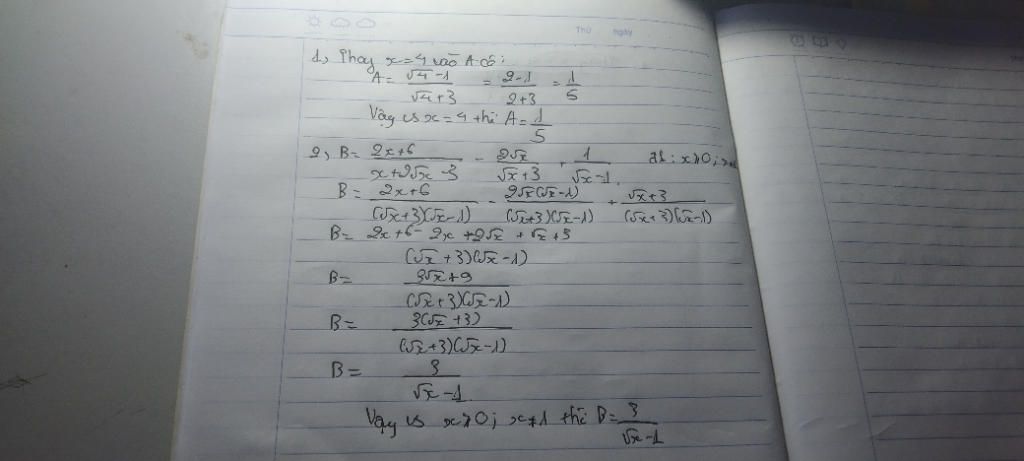 Thứ ngày
1, Thay x=4 vào A có:
A= (√4-1)/(√4+3) = (2-1)/(2+3) = 1/5
Vậy vs x=4 thì A=1/5
2, B= (2x+6)/(x+2√x-3) - 2√x/(√x+3) + 1/(√x-1) đk: x≥0; x≠
B= (2x+6)/((√x+3)(√x-1)) - 2√x(√x-1)/((√x+3)(√x-1)) + (√x+3)/((√x+3)(√x-1))
B= (2x+6-2x+2√x+√x+3)/((√x+3)(√x-1))
B= (3√x+9)/((√x+3)(√x-1))
B= 3(√x+3)/((√x+3)(√x-1))
B= 3/(√x-1)
Vậy vs x≥0; x≠1 thì B= 3/(√x-1)